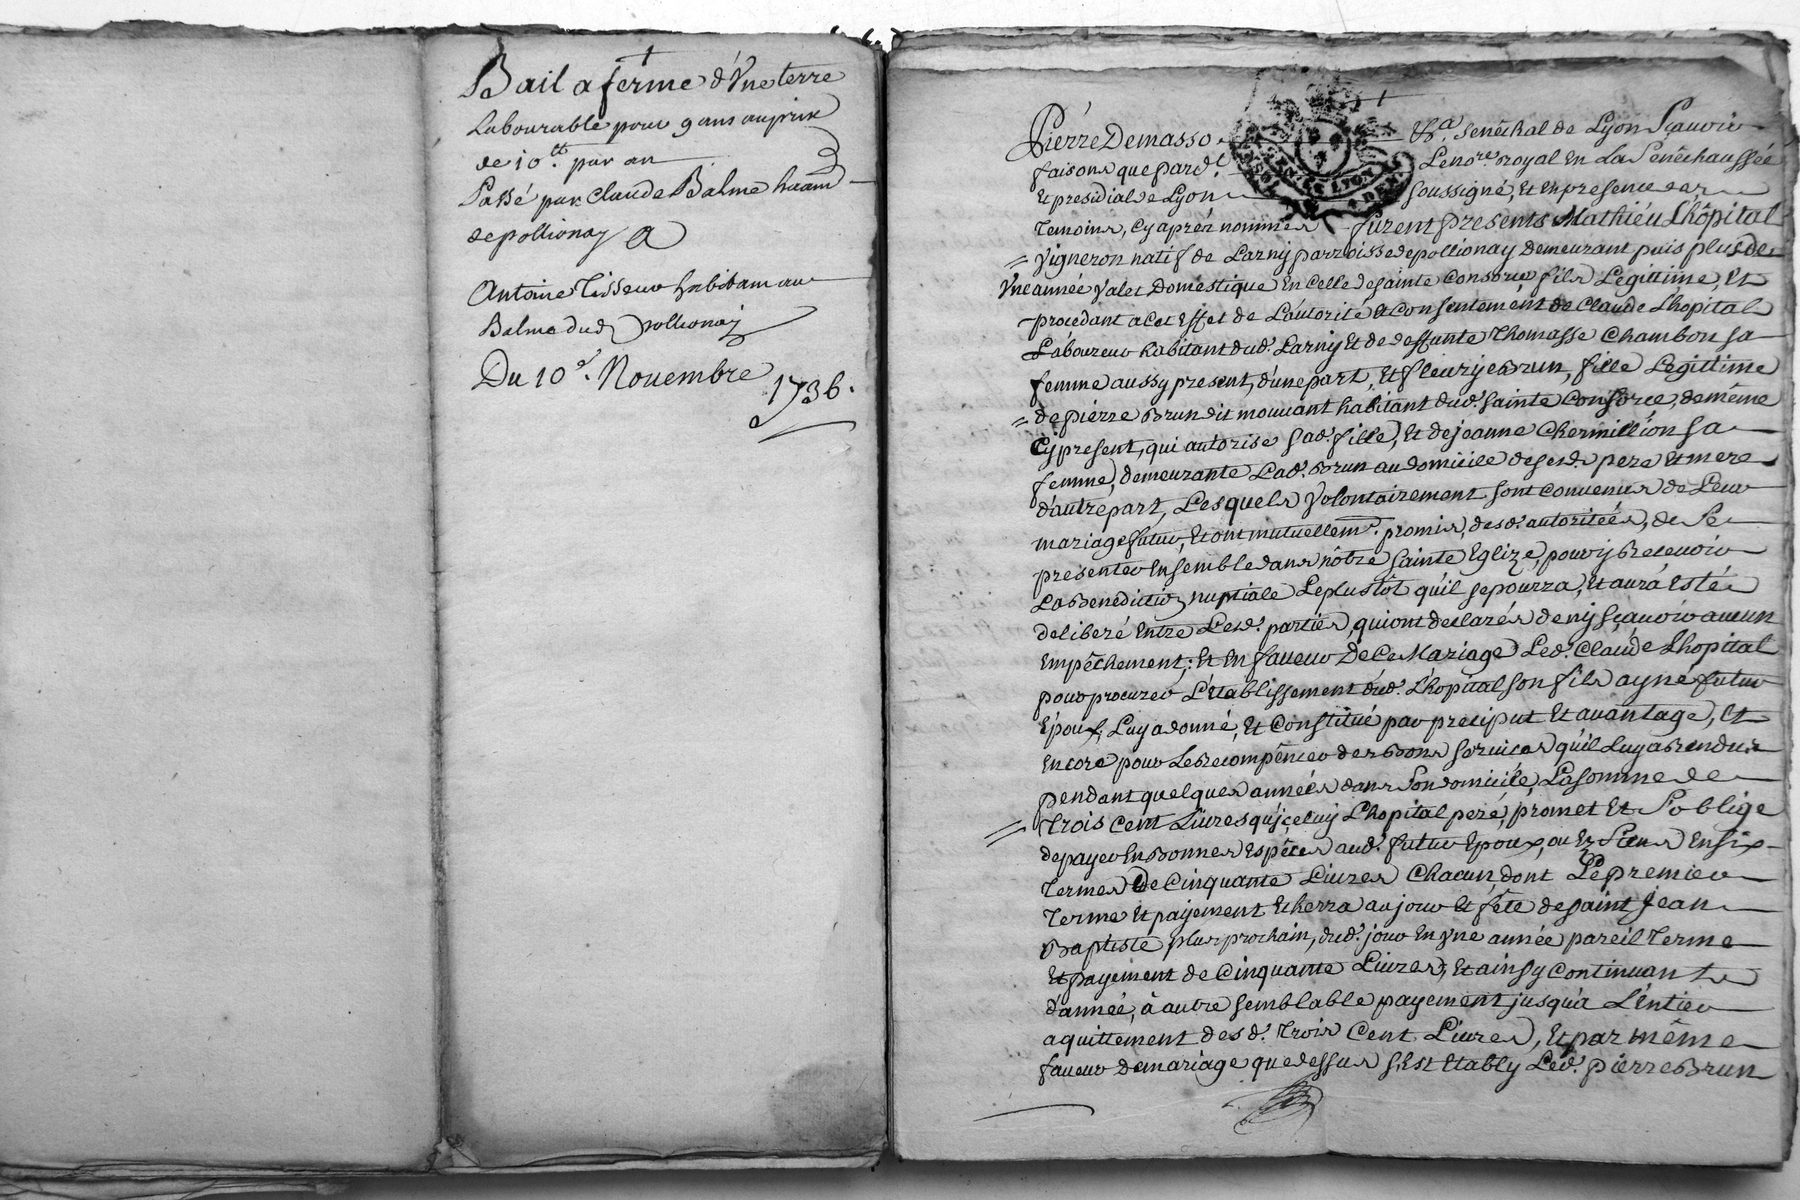 Bail a ferme d'Vne terre
Labourable pour 9 ans au prix
de 10 tt. par an
Passé par Claude Balme hâant
de pollionay a
Antoine Tisseur habitant au
Balme dud. pollionay
Du 10e. Nouembre
1736.
Pierre Demasso &a. senéchal de Lyon Sçauoir
faisons que pard.t Le nore. royal En La Senéchaussée
Et presidial de Lyon soussigné, Et En presence des
Temoins, Cy aprés nommés furent presents Mathieu Lhôpital
Vigneron natif de Larny parroisse de pollionay demeurant puis plus de
Vne année Valet Doméstique En Celle de sainte Consorce fils Legittime, Et
procedant a Cet Effet de L'autorité & Consentemént de Claude Lhopital
Laboureur habitant dud. Larny Et de deffunte Thomasse Chambon sa
femme aussy present, d'une part, Et fleurye Brun, fille Legittime
de pierre Brun dit mouuant habitant dud. sainte Consorce, de même
Cy present, qui autorise sad. fille, Et de jeanne Chermillion sa
femme, demeurante Lad. Brun au domicile de sesd. pere Et mere
d'autre part, Lesquels Volontairement sont Conuenus de Leur
mariage futur, Et ont mutuellemt. promis, desd. autoritées, de se
presenter Ensemble dans nôtre sainte Eglize, pour y Receuoir
La Benediction nuptiale Le plustôt qu'il se pourra, Et aura Esté
deliberé Entre Lesd. parties, qui ont declarés de ny sçauoir aucun
Empêchement; Et En faueur De Ce Mariage Led. Claude Lhopital
pour procurer L'etablissement dud. Lhopital son fils ayné futur
Epoux, Luy a donné, Et Constitué par preciput Et auantage, Et
Encore pour Le Recompênser des Bons seruices qu'il Luy a Rendus
pendant quelques années dans son domicile, La somme de
Trois Cent Liures qu'jceluy Lhopital peré, promet Et s'oblige
de payer En Bonnes Espêces aud. futur Epoux, ou Es siens En six
Termes De Cinquante Liures Chacun, dont Le premier
Terme Et payement Echerra au jour Et fête de saint Jean
Baptiste plus prochain, dud. jour En Vne année pareil Terme
Et payement de Cinquante Liures, Et ainsy Continuant
d'année, à autre semblable payement jusqu'a L'entier
aquittement desd. Trois Cent Liures, Et par même
faueur de mariage que dessus s'est Etably Led. pierre Brun